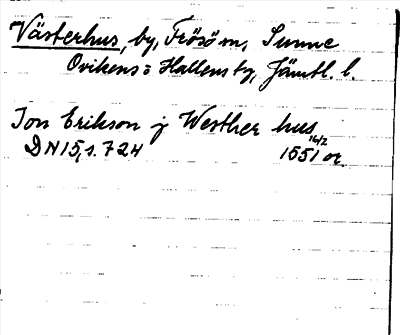 Västerhus, by, Frösö sn, Sunne
Ovikens o Hallens tg, Jämtl. l.
Jon Erikson j Westher hus
DN 15, s. 724 16/2 1551 or.